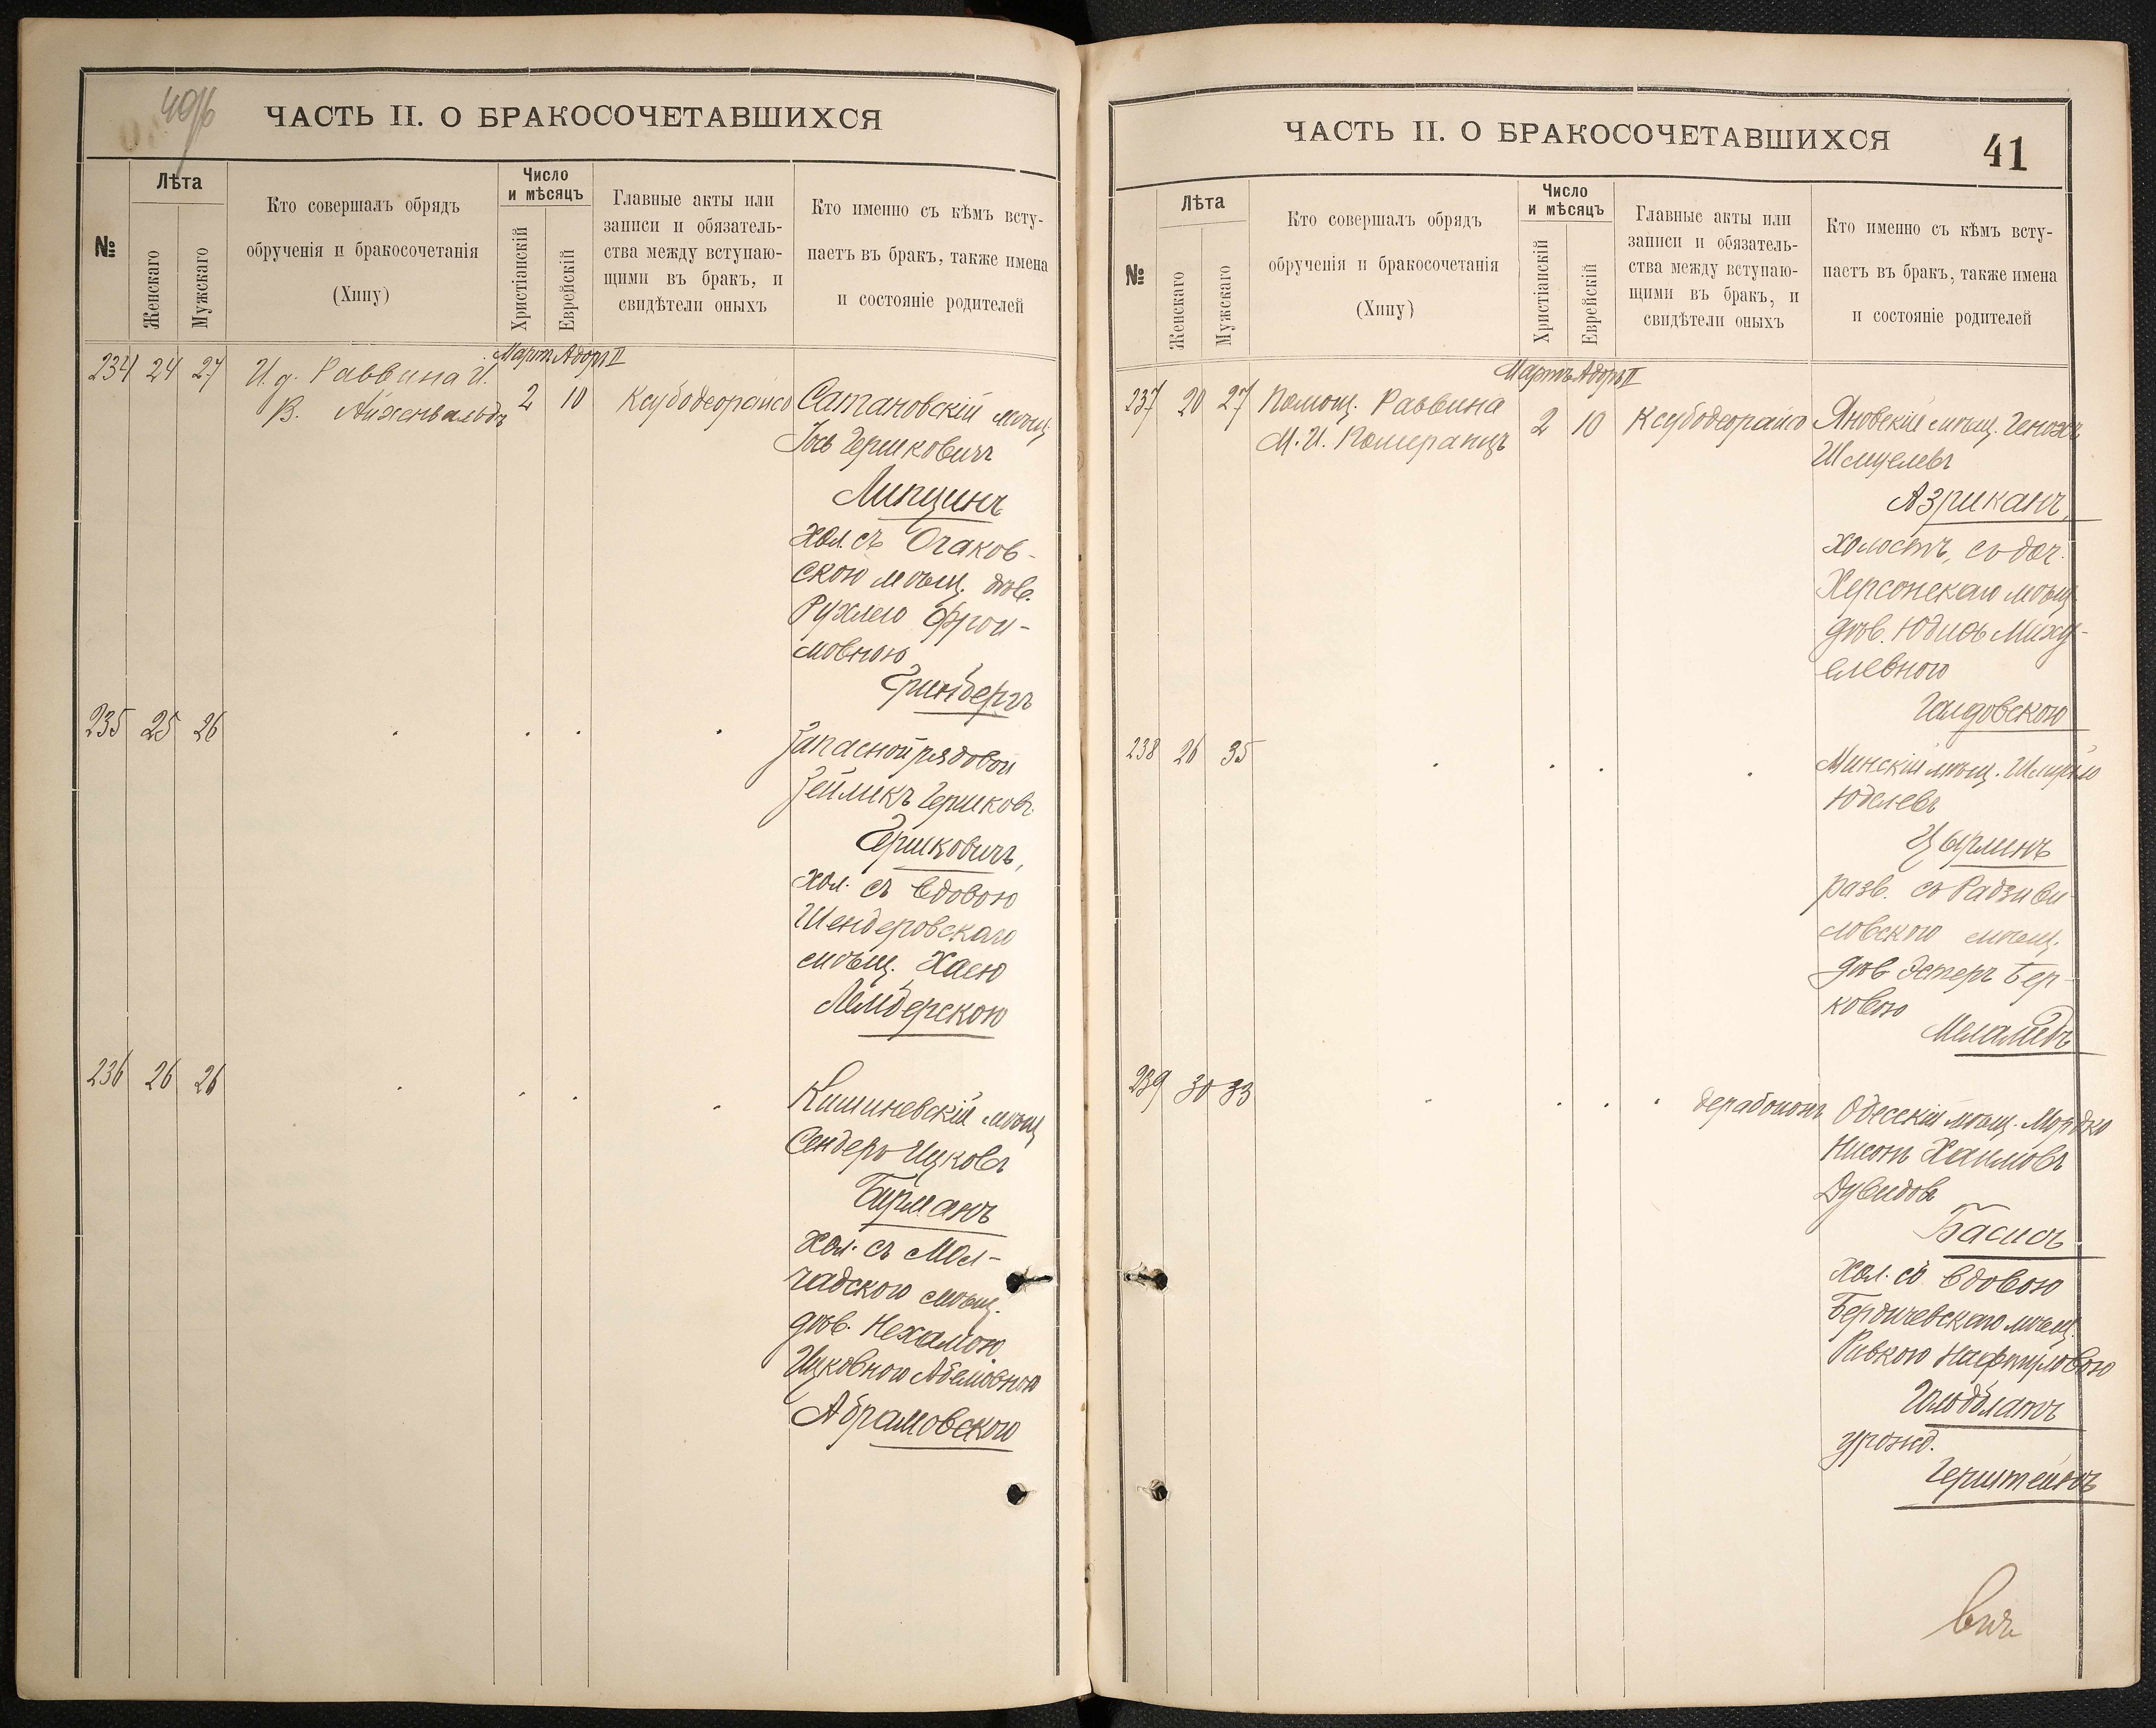 40об
ЧАСТЬ II. О БРАКОСОЧЕТАВШИХСЯ
№
Лѣта
Женскаго
Мужскаго
Кто совершалъ обрядъ
обрученія и бракосочетанія
(Хипу)
Число
и мѣсяцъ
Христіанскій
Еврейскій
Главные акты или
записи и обязатель-
ства между вступаю-
щими въ бракъ, и
свидѣтели оныхъ
Кто именно съ кѣмъ всту-
паетъ въ бракъ, также имена
и состояніе родителей
Мартъ Адоръ II
234 24 27 И. д. Раввина И. 2 10 Ксубодеорайсо Сатановскій мѣщ.
В. Айхенвальдъ
Іось Гершковичъ
Липцинъ
хол. съ Очаков-
скою мѣщ. дѣв.
Рухлею Фрои-
мовною
Гринбергъ
235 25 26 . . . . Запасной рядовой
Зейликъ Гершковъ
Гершковичъ,
хол. съ вдовою
Шендеровскаго
мѣщ. Хаею
Лемберскою
236 26 26 . . . . Кишиневскій мѣщ
Сендеръ Ицковъ
Гурманъ
хол. съ Мол-
чадскою мѣщ.
дѣв. Нехамою
Ицковною Абелiовною
Абрамовскою
ЧАСТЬ II. О БРАКОСОЧЕТАВШИХСЯ
41
№
Лѣта
Женскаго
Мужскаго
Кто совершалъ обрядъ
обрученія и бракосочетанія
(Хипу)
Число
и мѣсяцъ
Христіанскій
Еврейскій
Главные акты или
записи и обязатель-
ства между вступаю-
щими въ бракъ, и
свидѣтели оныхъ
Кто именно съ кѣмъ всту-
паетъ въ бракъ, также имена
и состояніе родителей
Мартъ Адоръ II
237 20 27 Помощ. Раввина 2 10 Ксубодеорайсо Яновскій мѣщ. Генохъ
М. И. Померанцъ
Шмулевъ
Азриканъ,
холостъ, съ доч.
Херсонскаго мѣщ
дѣв. Юдись Миху-
елевною
Галдовскою
238 26 35 . . . . Минскій мѣщ. Шмуйло
Юделевъ
Цырлинъ
разв. съ Радзиви-
ловскою мѣщ.
дѣв Эстеръ Бер-
ковою
Меламедъ
239 30 33 . . . . дерабононъ Одесскій мѣщ. Мордко
Нисонъ Хаимовъ
Дувидовъ
Басисъ
хол. съ вдовою
Бердичевскаго мѣщ.
Ривкою Нафтуловою
Гольдблатъ
урожд.
Герштейнъ